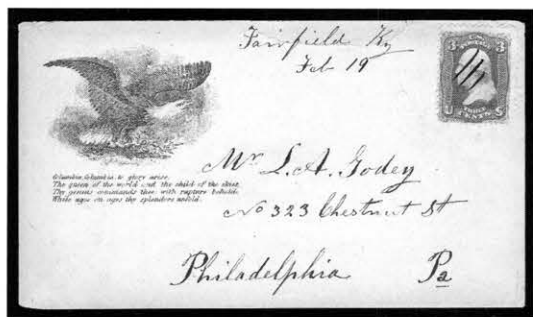 Fairfield Ky
Feb 19
3 3
U.S. POSTAGE
THREE CENTS
U S
Columbia, Columbia, to glory arise,
The queen of the world and the child of the skies,
Thy genius commands thee with rapture behold,
While ages on ages thy splendors unfold.
Mr L. A. Godey
No 323 Chestnut St
Philadelphia Pa